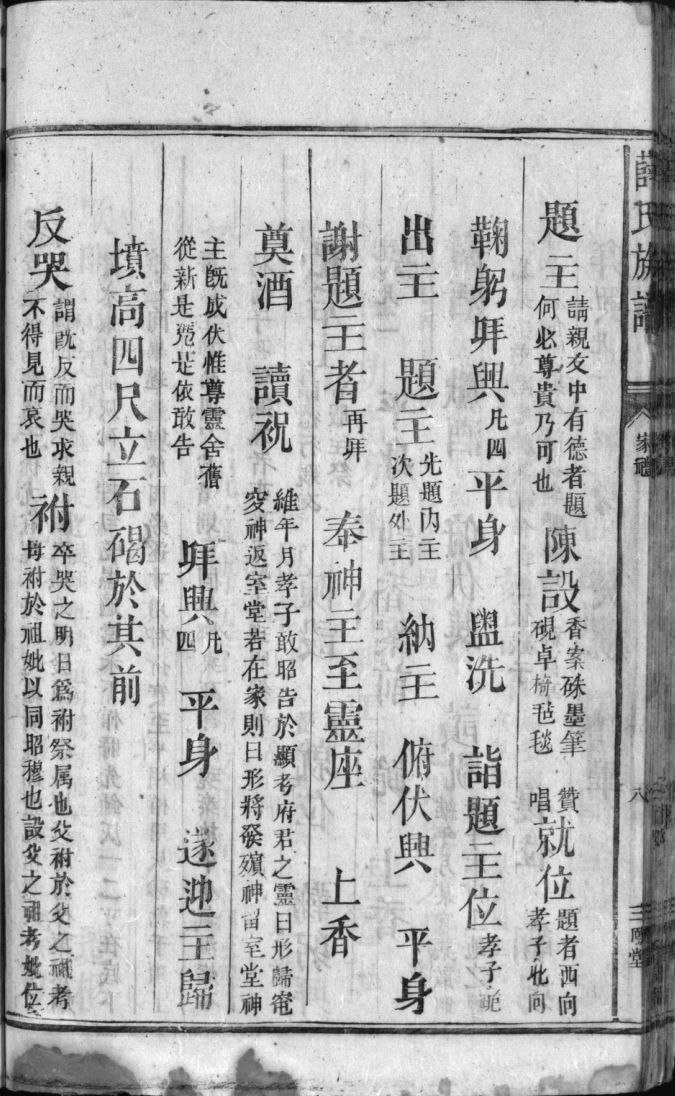 薛氏族譜 家禮 八
題主 請親友中有德者題何必尊貴乃可也 陳設 香案硃墨筆硯卓椅毡毯 贊唱 就位 題者西向孝子北向
鞠躬拜興 凡四 平身 盥洗 詣題主位 孝子跪
出主 題主 先題內主次題外主 納主 俯伏興 平身
謝題主者 再拜 奉神主至靈座 上香
奠酒 讀祝 維年月孝子敢昭告於顯考府君之靈曰形歸窀穸神返室堂若在家則曰形將發殯神留室堂神
主旣成伏惟尊靈舍舊從新是凴是依敢告 拜興 凡四 平身 遂迎主歸
墳高四尺立石碣於其前
反哭 謂旣反而哭求親不得見而哀也 祔 卒哭之明日爲祔祭属也父祔於父之祖考母祔於祖妣以同昭穆也設父之祖考妣位